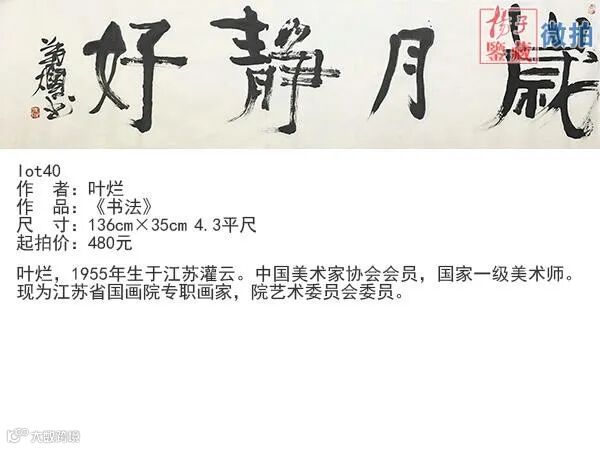 歲月靜好
楊子
鑒藏
微拍
lot40
作 者：叶烂
作 品：《书法》
尺 寸：136cm×35cm 4.3平尺
起拍价：480元
叶烂，1955年生于江苏灌云。中国美术家协会会员，国家一级美术师。
现为江苏省国画院专职画家，院艺术委员会委员。
大数跨境